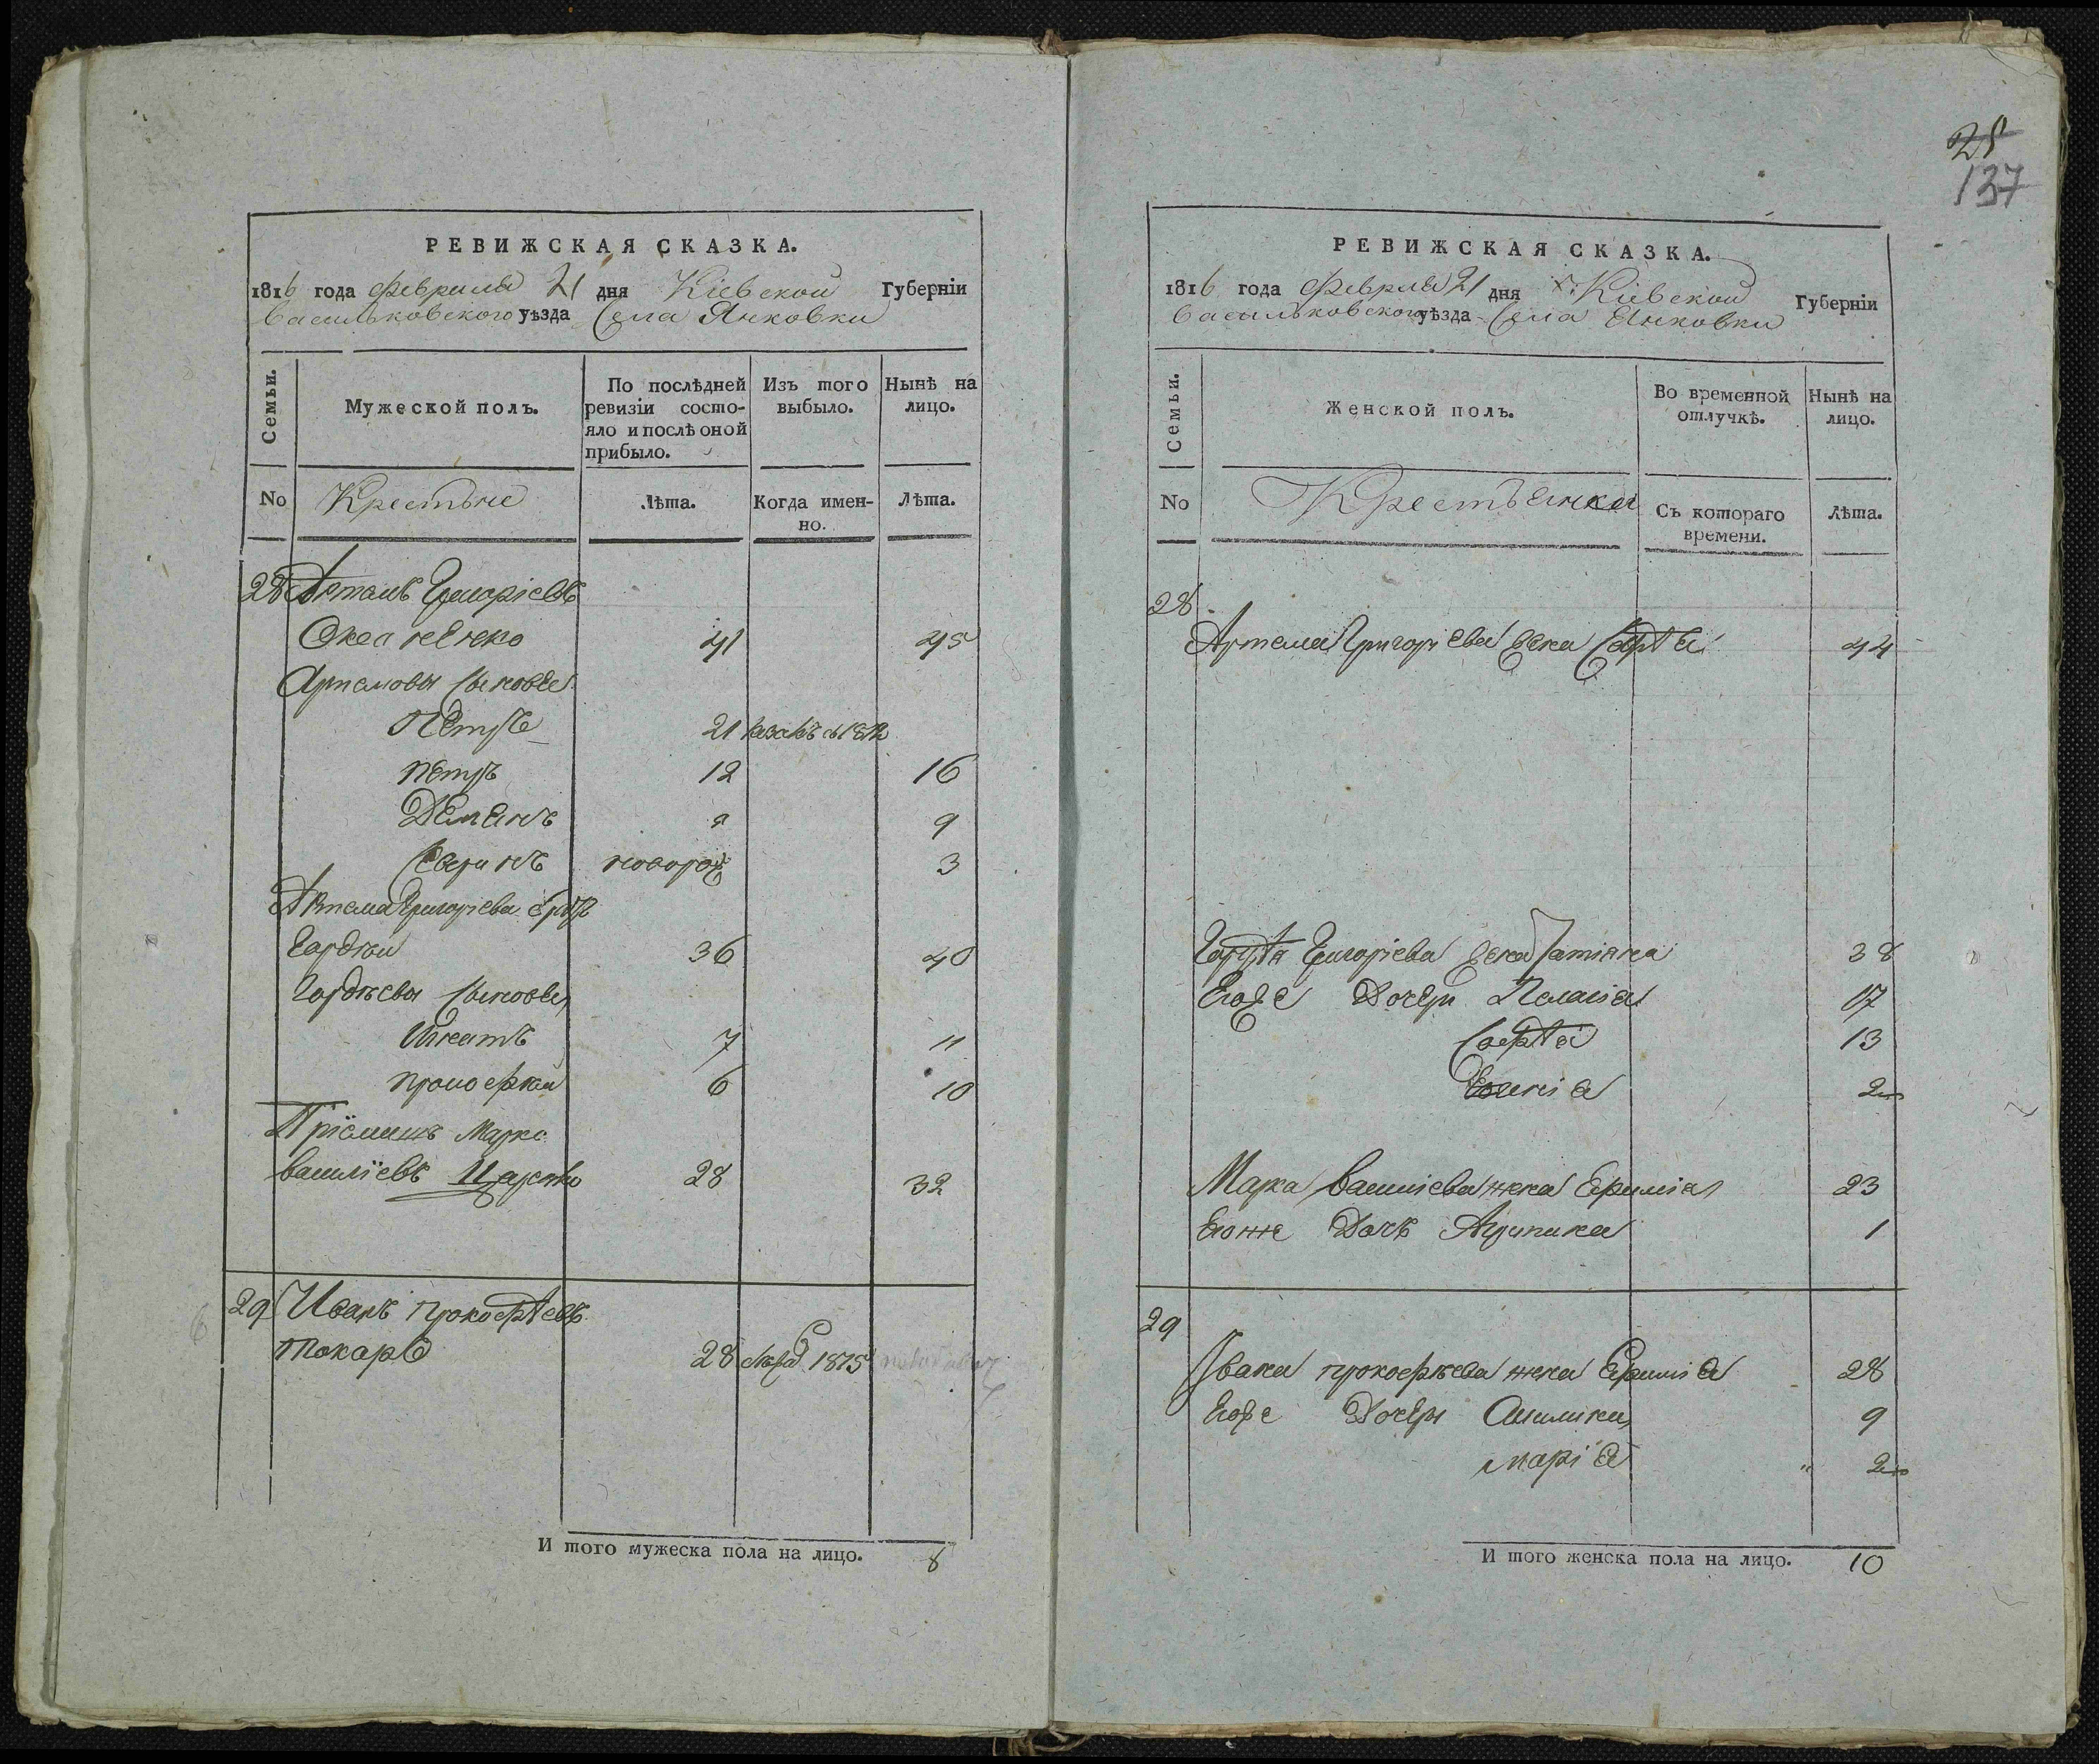 РЕВИЖСКАЯ СКАЗКА.
1816 года февраля 21 дня Кіевской Губерніи
Васильковского уѣзда Села Янковки
Семьи.
Мужеской полъ.
По послѣдней ревизіи состояло и послѣ оной прибыло.
Изъ того выбыло.
Нынѣ на лицо.
No
Крестьяне
Лѣта.
Когда именно.
Лѣта.
28 Артемъ Григоріевъ
41 45
Артемовы сыновья
Петръ 21
петръ 12 16
Демянъ 9
новорож 3
Артема Григоріева братъ
Гордѣй 36 40
Гордѣевы сыновья
Игнатъ 7 11
прокофѣй 6 10
Пріёмишъ Марко
василіевъ 28 32
29 Иванъ прокофѣевъ
Токарь 28 1815
И того мужеска пола на лицо. 8
25
137
РЕВИЖСКАЯ СКАЗКА.
1816 года февраля 21 дня Кіевской Губерніи
Васильковского уѣзда Села Янковки
Семьи.
Женской полъ.
Во временной отлучкѣ.
Нынѣ на лицо.
No
Крестьянки
Съ котораго времени.
Лѣта.
28
Артема Григоріева жена Софѣя 44
Гордѣя Григоріева жена Татіяна 38
Егоже дочери Пелагія 17
Софѣя 13
2
Марка василіева жена 23
Егоже дочь Агрипина 1
29
Івана прокофѣева жена 28
Егоже дочери 9
марія " 2
И того женска пола на лицо. 10